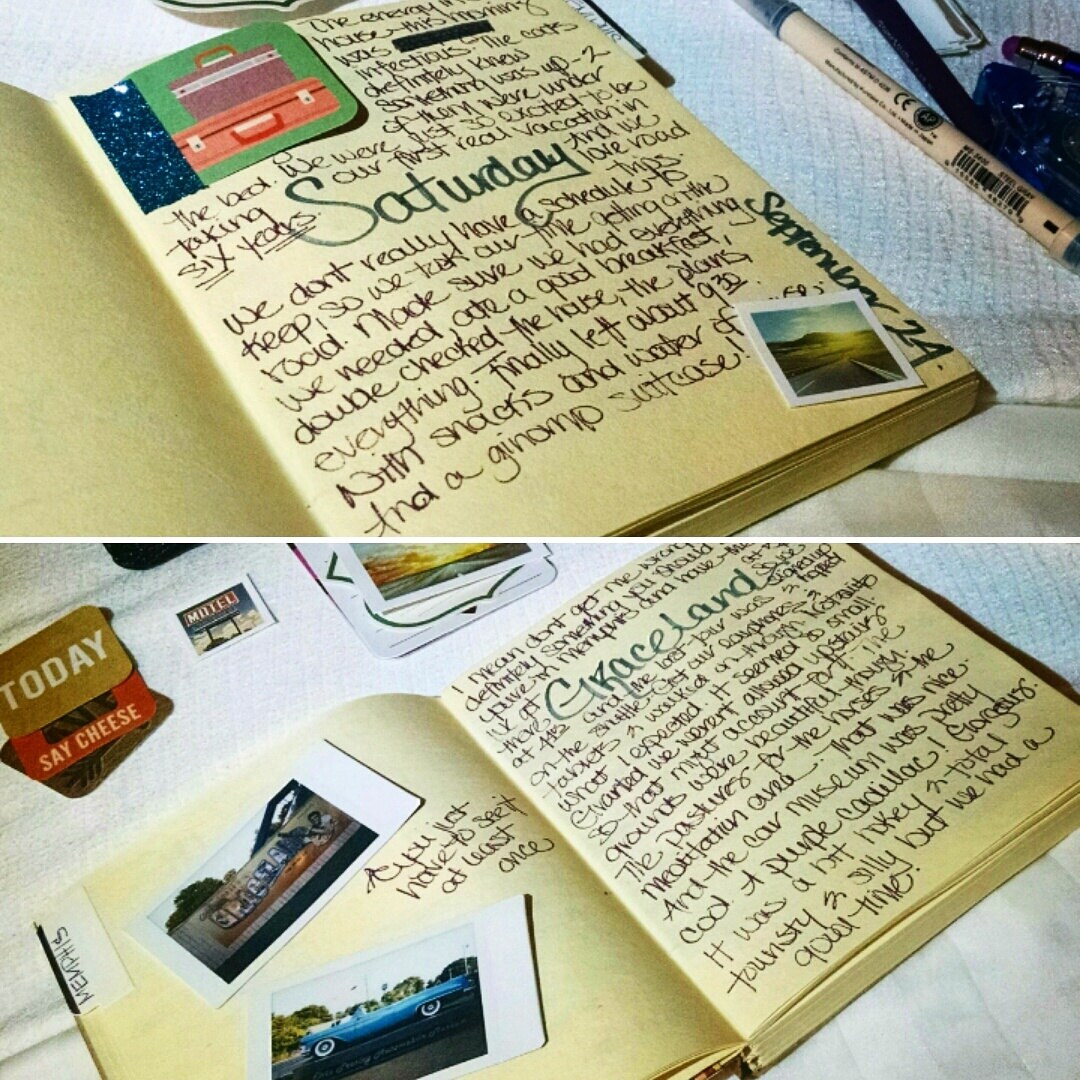 The energy in
house this morning
was
infectious. The cats
definitely knew
something was up - 2
of them were under
the bed. We were just so excited to be
taking our first real vacation in
six years. And we
love road
trips.
Saturday
September 24.
We don't really have a schedule to
keep, so we took our time getting on the
road. Made sure we had everything
we needed, ate a good breakfast,
double checked the house, the plans,
everything. Finally left about 9:30
With snacks and water
And a ginormo suitcase!
MOTEL
TODAY
SAY CHEESE
I mean don't get me wrong
definitely something you should
you're in Memphis and have the
Graceland
at 4:15 and the last tour was
on the shuttle. Got our earphones &
tablets & walked on through. Not quite
what I expected. It seemed so small.
Granted we weren't allowed upstairs
so that might account for it. The
grounds were beautiful though.
The pastures for the horses & the
meditation area. That was nice
And the car museum was pretty
cool. A purple cadillac! Gorgeous.
It was a bit hokey & total
touristy & silly but we had a
good time!
As you just
have to see it
at least
once
MEMPHIS